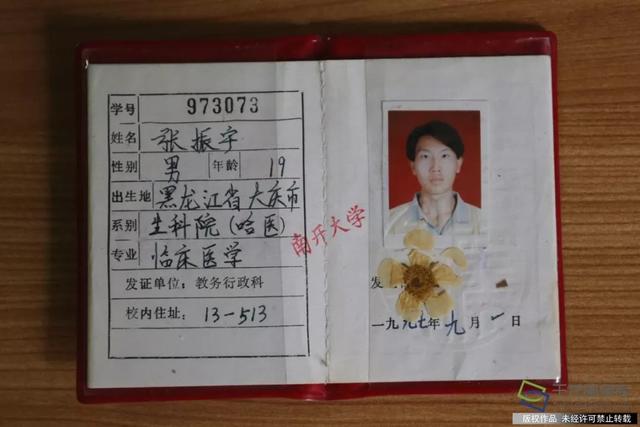 学号 973073
姓名 张振宇
性别 男 年龄 19
出生地 黑龙江省大庆市
系别 生科院(哈医)
专业 临床医学
发证单位: 教务行政科
校内住址: 13-513
南开大学
发
一九九七年九月一日
版权作品 未经许可禁止转载